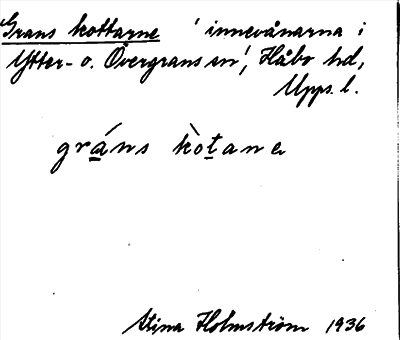 Grans kottarne 'innevånarna i
Ytter- o. Övergrans sn', Håbo hd,
Upps. l.
gráns kòtane
Stina Holmström 1936